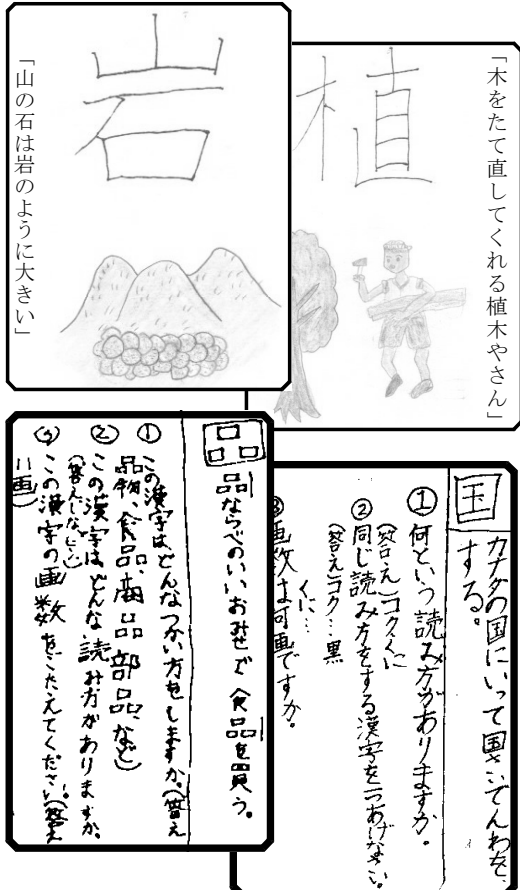 岩
「山の石は岩のように大きい」
植
「木をたて直してくれる植木やさん」
品
品ならべのいいおみせで食品を買う。
① この漢字は、どんなつかい方をしますか。(答え
品物、食品、商品、部品、など)
② この漢字はどんな読み方がありますか。
(答えしな、ヒン)
③ この漢字の画数をこたえてください。(答え
画)
国
カナダの国にいって国さいでんわを、
する。
① 何という読み方がありますか。
(答え)コク、くに
② 同じ読み方をする漢字を一つあげなさい。
(答え)コク…黒
くに…
③ 画数は何画ですか。